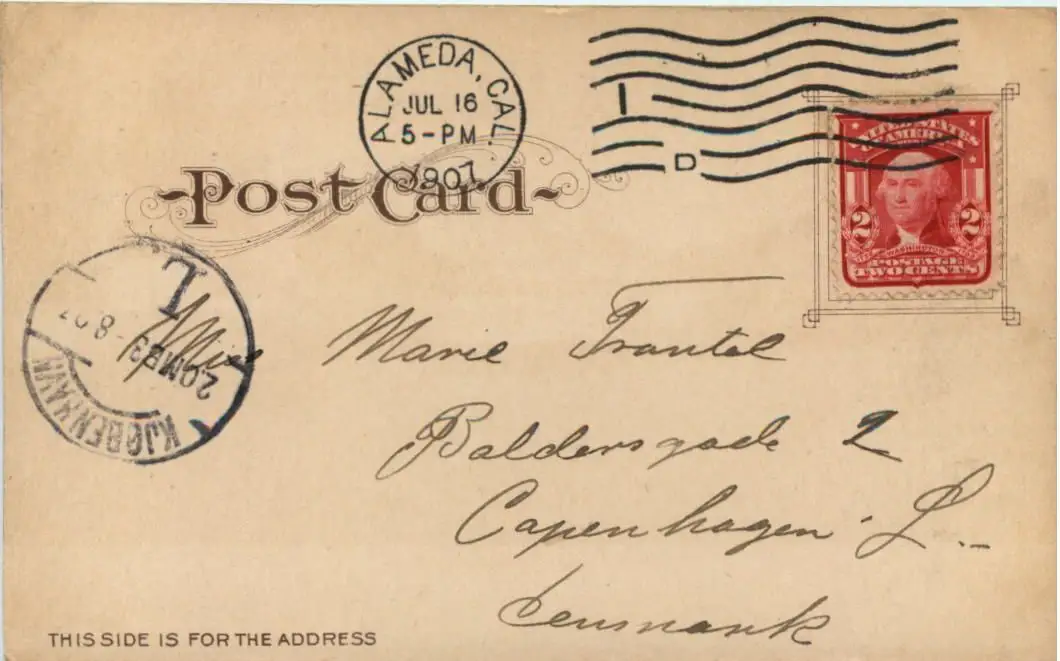 ALAMEDA, CAL.
JUL 16
5-PM
1907
1
D
Post Card
UNITED STATES
OF AMERICA
2 2
WASHINGTON
POSTAGE
TWO CENTS
L
KJØBENHAVN
Miss Marie Trantel
Baldersgade 2
Copenhagen. L.
Denmark
THIS SIDE IS FOR THE ADDRESS